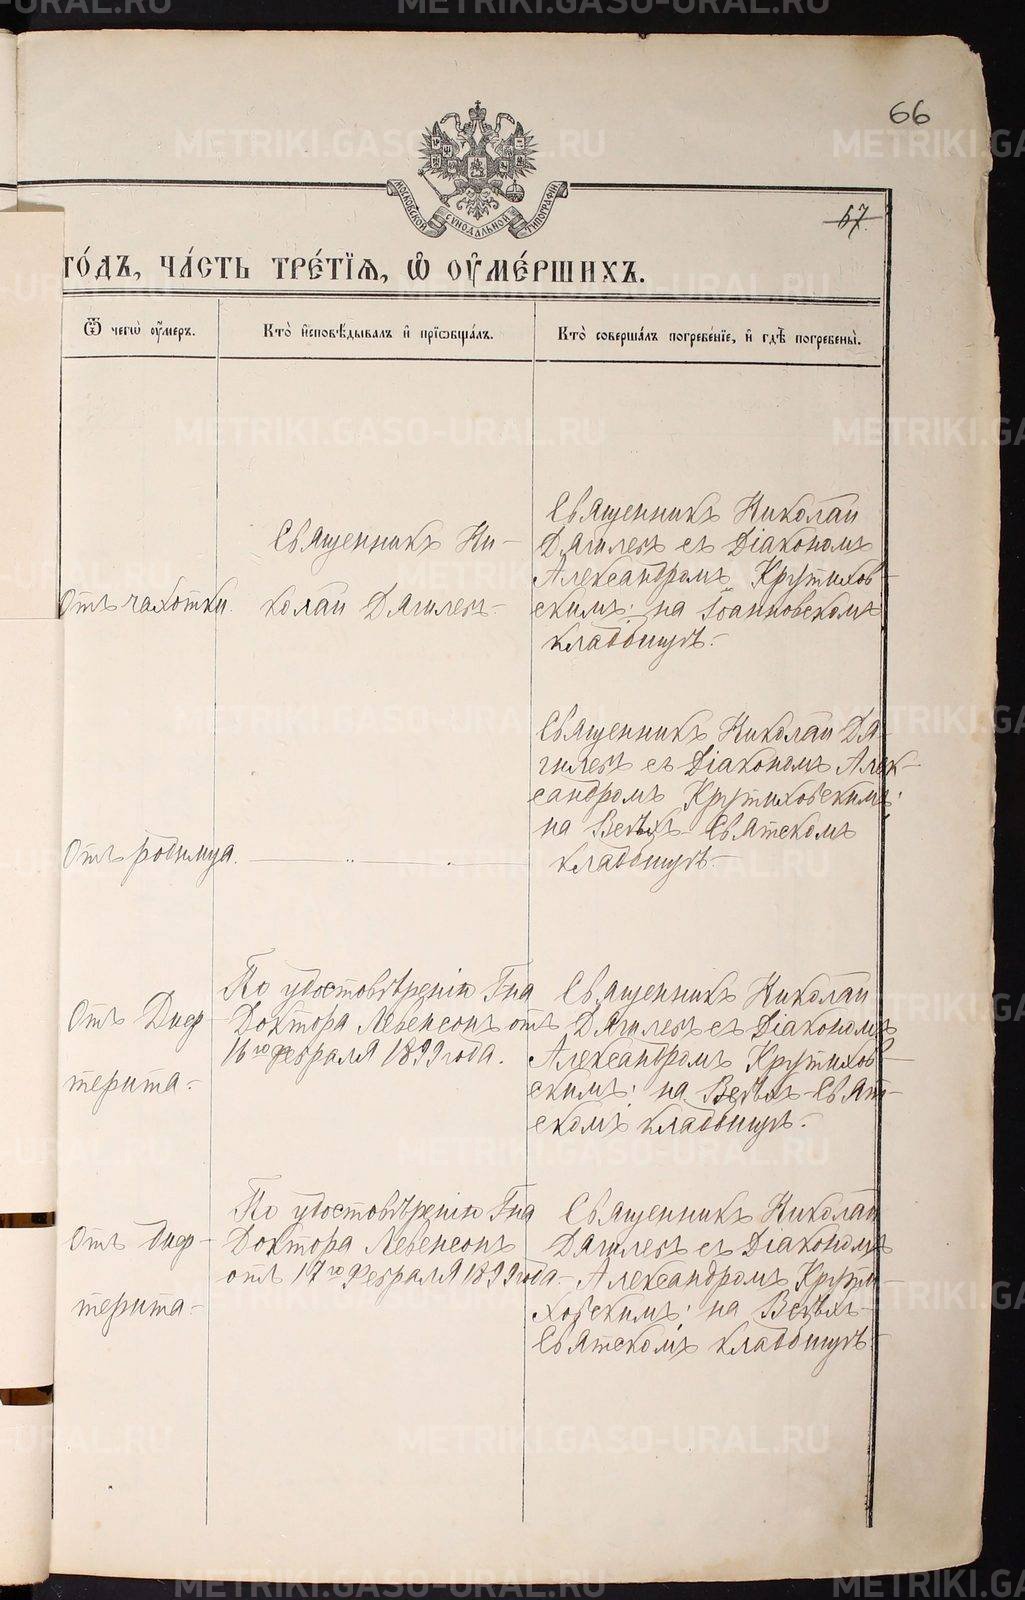 66
57.
МОСКОВСКОЙ СѴНОДАЛЬНОЙ ТИПОГРАФІИ
ГО́ДЪ, ЧА́СТЬ ТРЕ́ТІѦ, Ѽ ОУМЕ́РШИХЪ.
Ѿ чегѡ̀ оу҆́меръ.
Кто̀ и҆сповѣ́дывалъ и҆ прїѡбща́лъ.
Кто̀ соверша́лъ погребе́нїе, и҆ гдѣ̀ погребены̀.
Отъ чахотки.
Священникъ Ни-
колай Дягилевъ-
Священникъ Николай
Дягилевъ съ Діакономъ
Александромъ Крутихов-
скимъ; на Іоанновскомъ
кладбищѣ.-
Отъ родимца.
Священникъ Николай Дя-
гилевъ съ Діакономъ Алек-
сандромъ Крутиховскимъ;
на Всѣхъ-Святскомъ
кладбищѣ-
Отъ Диф-
терита-
По удостовѣренію Гна
Доктора Левенсонъ отъ
16го февраля 1899 года.
Священникъ Николай
Дягилевъ съ Діакономъ
Александромъ Крутихов-
скимъ; на Всѣхъ-Свят-
скомъ кладбищѣ.-
Отъ диф-
терита-
По удостовѣренію Гна
Доктора Левенсонъ
отъ 17го февраля 1899 года-
Священникъ Николай
Дягилевъ съ Діакономъ
Александромъ Крути-
ховскимъ; на Всѣхъ-
Святскомъ кладбищѣ-
METRIKI.GASO-URAL.RU